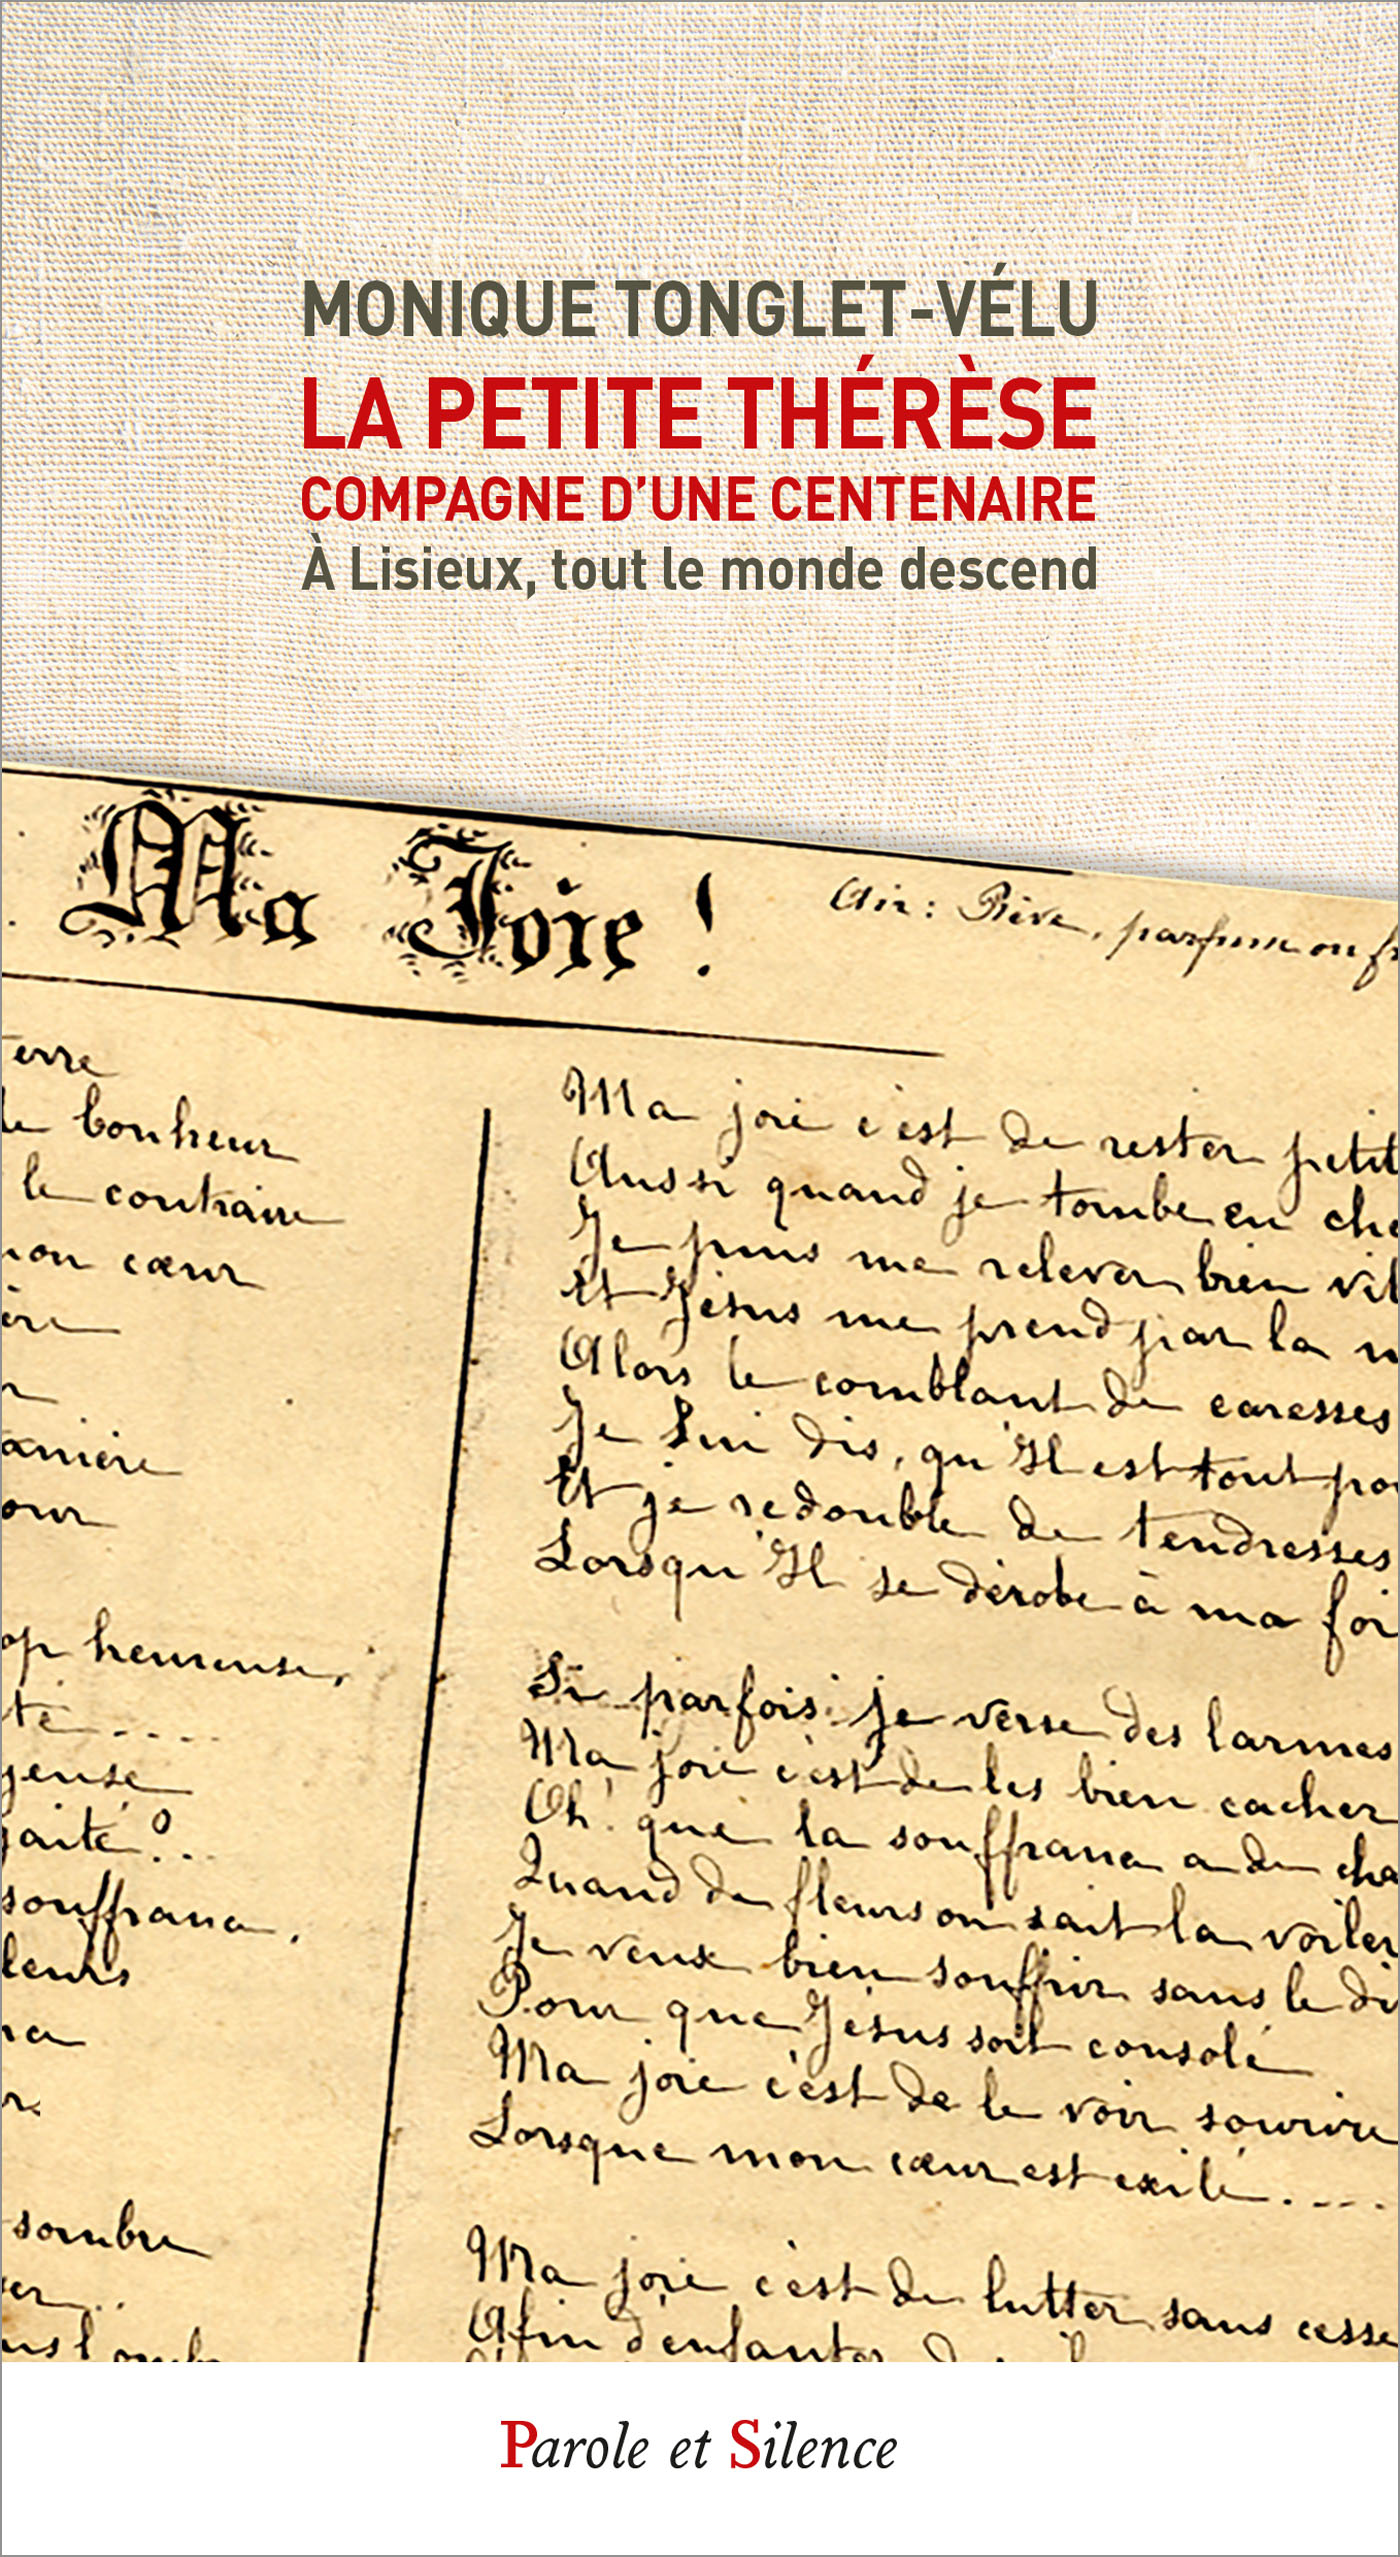 MONIQUE TONGLET-VÉLU
LA PETITE THÉRÈSE
COMPAGNE D’UNE CENTENAIRE
À Lisieux, tout le monde descend
Ma Joie !
Air : Rêve, parfum ou fr
erre
le bonheur
le contraire
mon cœur
ère
anière
our
op heureuse,
té ....
geuse
gaité ?..
souffrance,
leurs
sombre
Ma joie c'est de rester petit
Aussi quand je tombe en che
Je puis me relever bien vit
Et Jésus me prend par la m
Alors le comblant de caresses
Je Lui dis, qu'Il est tout pou
Et je redouble de tendresses
Lorsqu'Il se dérobe à ma foi
Si parfois je verse des larmes
Ma joie c'est de les bien cacher
Oh! que la souffrance a de cha
Quand de fleurs on sait la voiler
Je veux bien souffrir sans le di
Pour que Jésus soit consolé
Ma joie c'est de le voir sourire
Lorsque mon cœur est exilé ....
Ma joie c'est de lutter sans cesse
Afin d'enfanter
Parole et Silence